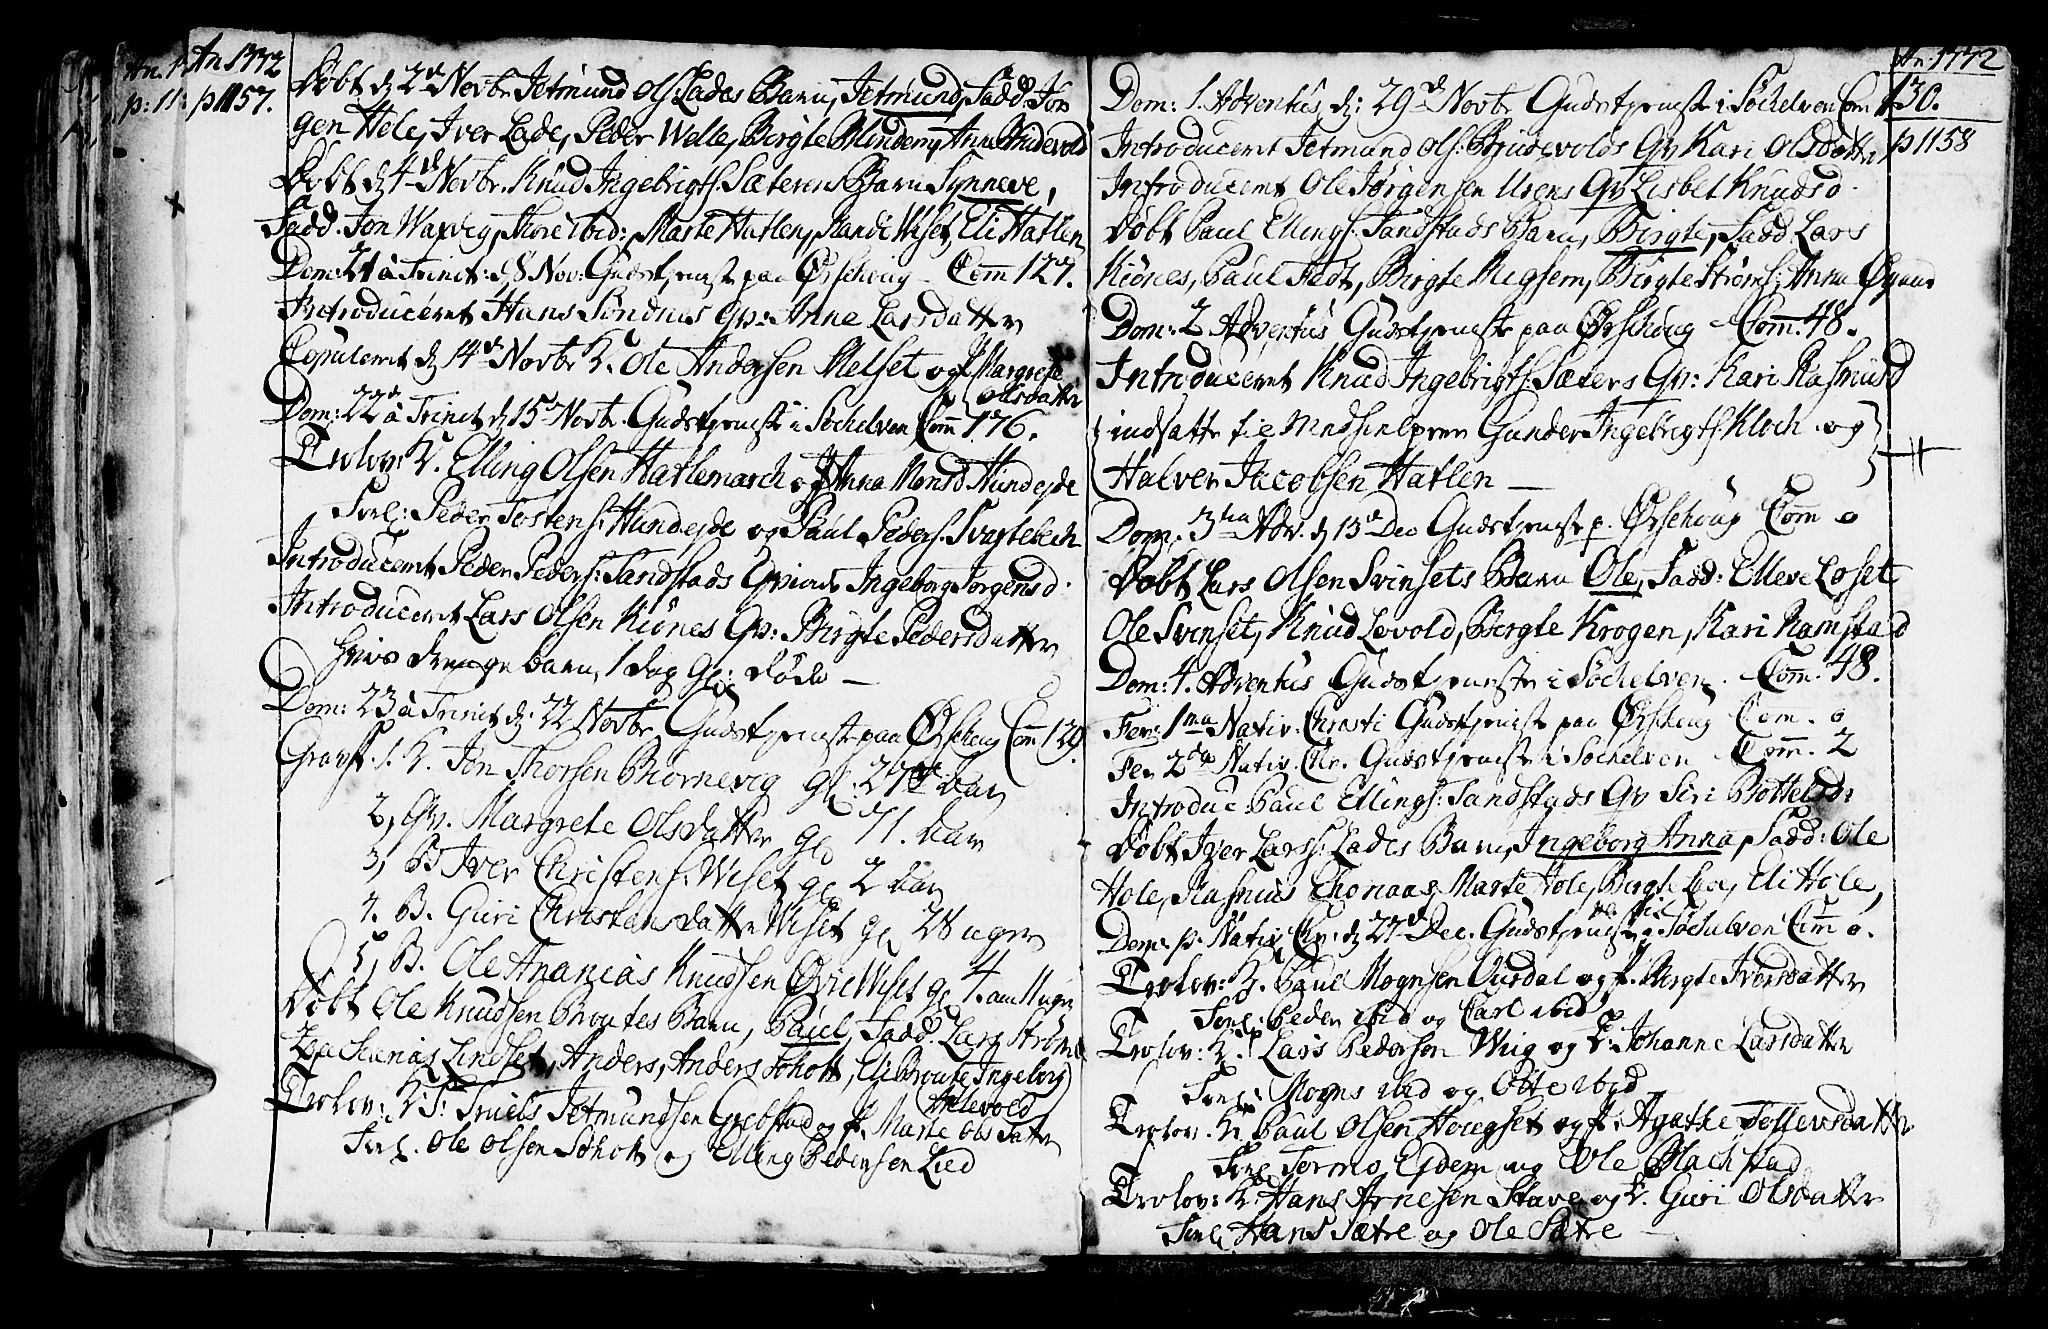 An 1772
p 1157.
Døbt d 2d Novbr Jetmund Ols. Lades Barn, Jetmund, Fadd. Jør
gen Hole, Iver Lade, Peder Welle, Birgte Blindem, Anna Hundevold
Døbt d 4d Novbr. Knud Ingebrigts. Sæterens Barn Synneve,
Fadd. Jon Warvig, Thore ibid: Marte Hatlen, Randi Wiset, Eli Hatlen
Dom: 21 à Trinit: d 8 Nov: Gudstieneste paa Ørschoug - Comm 127.
Introduceret Hans Søndnes Qv: Anne Larsdatter
Copuleret d 14d Novbr K. Ole Andersen Melset og P Margrete
Olsdatter
Dom: 22d à Trinit d 15d Novbr. Gudstieneste i Søchelven Comm 176.
Trolov: K. Elling Olsen Hatlemarch og P Anna Monsd Hundejde
Forl: Peder Tostens. Hundejde og Paul Peders. Svartebech
Introduceret Peder Peders: Sandstads Qvinde Ingeborg Jørgensd.
Introduceret Lars Olsen Kiønes Qv: Birgte Pedersdatter
hvis drenge barn, 1 dag gl: døde -
Dom: 23 à Trinit d: 22 Novbr. Gudstieneste paa Ørschoug Com 129.
Gravf. 1. K. Jon Thorsen Biørnevig gl: 27 aar
2, Qv. Margrete Olsdatter gl 71. aar
3, B Iver Christens. Wiset gl 2 aar
4. B. Guri Christensdatter Wiset gl 28 uger
5, B. Ole Ananias Knudsen Øvre Wiset gl 4. am 11 uger
Døbt Ole Knudsen Broutes Barn, Paul, Fadd. Lars Strøm
Zacharias Lindset, Anders, Anders Scholt, Eli Broute, Ingeborg
Anlevold
Trolov: K S: Truels Jetmundsen Grebstad og P. Marte Olsdatter
Forl. Ole Olsen Scholt og Elling Pedersen Lied
An: 1772
p 1158
Dom: 1. Adventus, d: 29d Novbr Gudstieneste i Søchelven Com 130.
Introduceret Jetmund Ols: Brudevolds Qv Kari Olsdatter
Introduceret Ole Jørgensen Urens Qv Lisbet Knudsd.
Døbt Paul Ellings. Sandstads Barn, Birgte, Fadd. Lars
Kiønes, Paul Fedt, Birgte Megsem, Birgte Strøms, Anna
Dom: 2 Adventus Gudstieneste paa Ørschoug - Comm. 48.
Introduceret Knud Ingebrigts. Sæters Qv: Kari Rasmusd
indsatte til Medhielpere Gunder Ingebrigts Kloch og
Halver Jacobsen Hatlen -
Dom: 3tia Adv. d 13d Dec Gudstieneste p. Ørschoug Com o
Døbt Lars Olsen Svinsets Barn Ole, Fadd: Elleve Løset
Ole Svinset, Knud Levold, Birgte Krogen, Kari Ramstad
Dom: 4. Adventus Gudstieneste i Søchelven. - Com. 48.
Fer: 1ma Nativ. Christi Gudstieneste paa Ørschoug Com. o
Fer 2da Nativ. Chr. Gudstieneste i Søchelven Comm. 2
Introduc Paul Ellings: Sandstads Qv Siri Bottelsd:
Døbt Iver Larss: Lades Barn, Ingeborg Anna, Fadd: Ole
Hole, Rasmus Chonaas, Marte Hole, Birgte Lade, Eli Hole,
Dom: p. Nativ. Chr: d 27d Dec. Gudstieneste i Søchelven Com o.
Trolov: K. Paul Mognsen Aursdal og P. Birgte Iversdatter
Forl: Peder ibid og Carl ibid
Trolov: K. Lars Pedersen Wiig og P: Johanne Larsdatter
Forl: Mogns ibid og Otte ibid
Trolov. K Paul Olsen Hougset og P. Agathe Tollevsdatter
Forl Tormo Ejdem og Ole Blachstad
Trolov: K: Hans Arnesen Stave og P. Guri Olsdatter
Forl Hans Sætre og Ole Sætre -